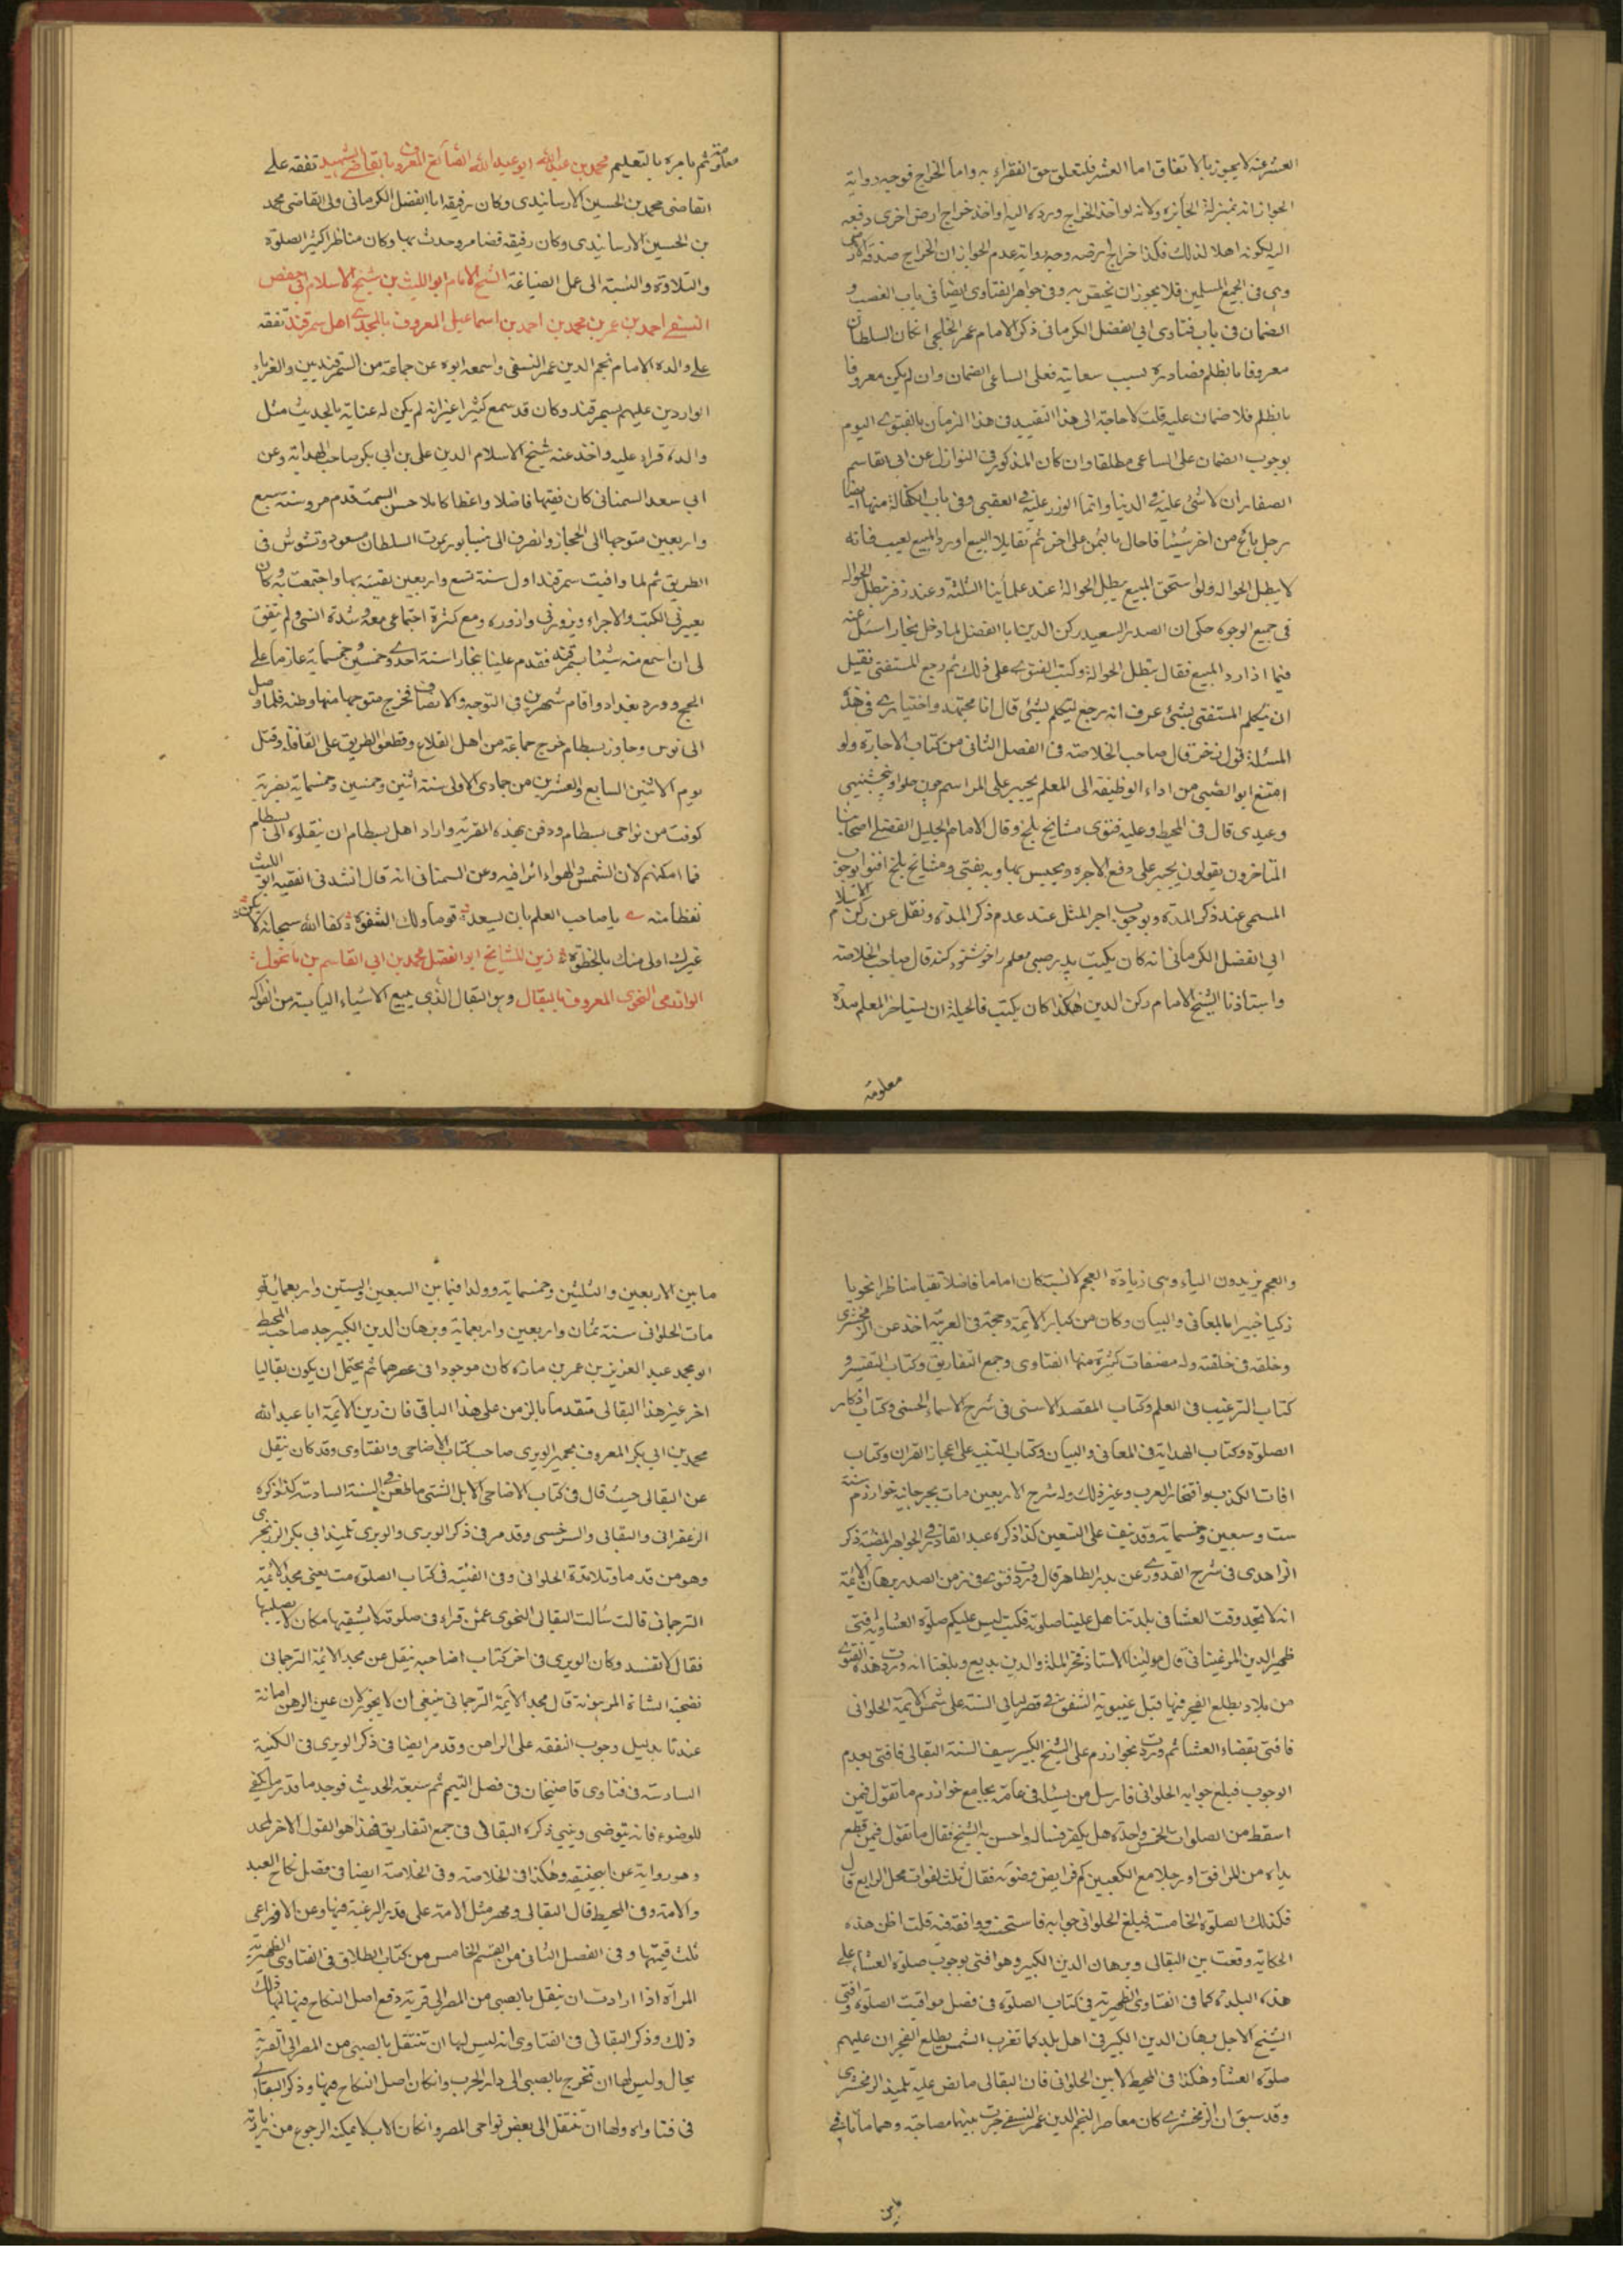 العشر عنه لا يجوز بالاتفاق اما العشر فلتعلق حق الفقراء به واما الخراج فوجه رواية
الجواز انه بمنزلة الجائزة ولانه لو اخذ الخراج ورده اليه او اخذ خراج ارض اخرى دفعه
اليه يكونه اهلا لذلك فكذا خراج ارضه وجه رواية عدم الجواز ان الخراج صدقة الارض
وهى فى الجميع المسلمين فلا يجوز ان يختص به وفى جواهر الفتاوى ايضا فى باب الغصب و
الضمان فى باب فتاوى ابى الفضل الكرمانى ذكر الامام عمر الخليجى ان كان السلطان
معروفا بالظلم فصادره بسبب سعايته فعلى الساعى الضمان وان لم يكن معروفا
بالظلم فلا ضمان عليه قلت لا حاجة الى هذا التقييد فى هذا الزمان بالفتوى اليوم
بوجوب الضمان على الساعى مطلقا وان كان المذكور فى النوازل عن ابى القاسم
الصفار ان لا شئ عليه فى الدنيا وانما الوزر عليه فى العقبى وفى باب الكفالة منها ايضا
رجل باع من اخر شيئا فاحال بالثمن على اخر ثم تقايلا البيع او رد المبيع لعيب فانه
لا يبطل الحوالة ولو استحق المبيع يبطل الحوالة عند علمائنا الثلثة وعند زفر تبطل الحوالة
فى جميع الوجوه حكى ان الصدر السعيد ركن الدين ابا الفضل لما دخل بخارا سئل عنه
فيما اذا رد المبيع فقال تبطل الحوالة وكتب الفتوى على ذلك ثم رجع المستفتى فقيل
ان تكلم المستفتى بشئ عرف انه رجع ليتكلم بشئ قال انا مجتهد واختيارى فى هذه
المسئلة قول زفر قال صاحب الخلاصة فى الفصل الثانى من كتاب الاجارة ولو
امتنع ابو الصبى من اداء الوظيفة الى المعلم يجبر على المراسم چون حلوا و پنجشنبهى
وعيدى قال فى المحيط وعليه فتوى مشائخ بلخ وقال الامام الجليل الفضلى اصحابنا
المتاخرون يقولون يجبر على دفع الاجرة ويحبس بها وبه يفتى ومشائخ بلخ افتوا بوجوب
المسمى عند ذكر المدة وبوجوب اجر المثل عند عدم ذكر المدة ونقل عن ركن الاسلام
ابى الفضل الكرمانى انه كان يكتب پدر صبى معلم را خوشنود كند قال صاحب الخلاصة
واستاذنا الشيخ الامام ركن الدين هكذا كان يكتب فالحيلة ان يستاجر المعلم مدة
معلومة
معلومة ثم يامره بالتعليم محمد بن عبد الله ابو عبد الله الصائغ المعروف بالقاضى الشهيد تفقه على
القاضى محمد بن الحسين الارسابندى وكان رفيقه ابا الفضل الكرمانى ولى القاضى محمد
بن الحسين الارسابندى وكان رفيقه قضا مرو وحدث بها وكان مناظرا كثير الصلوة
والتلاوة والنسبة الى عمل الصياغة الشيخ الامام ابو الليث بن شيخ الاسلام ابى حفص
النسفى احمد بن عمر بن محمد بن احمد بن اسماعيل المعروف بالمجد من اهل سمرقند تفقه
على والده الامام نجم الدين عمر النسفى واسمعه ابوه عن جماعة من السمرقنديين والغرباء
الواردين عليهم بسمرقند وكان قد سمع كثيرا غير انه لم يكن له عناية بالحديث مثل
والده قراء عليه واخذ عنه شيخ الاسلام الدين على بن ابى بكر صاحب الهداية وعن
ابى سعد السمنانى كان فقيها فاضلا واعظا كاملا حسن السمت قدم مرو سنة سبع
واربعين متوجها الى الحجاز وانصرف الى نيسابور بموت السلطان مسعود وتشوش فى
الطريق ثم لما وافيت سمرقند اول سنة تسع واربعين لقيته بها واجتمعت به وكان
يعيرنى الكتب والاجزاء ويزورنى وازوره ومع كثرة اجتماعى معه وشدة انسى ولم يتفق
لى ان اسمع منه شيئا بسمرقند فقدم علينا بخارا سنة احدى وخمسين وخمسماية عازما على
الحج وورد بغداد واقام شهرين فى التوجه والانصراف فخرج متوجها منها وطنه فلما وصل
الى نومس وجاوز بسطام خرج جماعة من اهل القلاع وقطعوا الطريق على القافلة وقتل
يوم الاثنين السابع والعشرين من جمادى الاولى سنة اثنين وخمسين وخمسماية بقرية
كوفت من نواحى بسطام ودفن بهذه القرية واراد اهل بسطام ان ينقلوه الى بسطام
فما امكنهم لان الشمس والهواء اثرا فيه وعن السمنانى انه قال انشدنى الفقيه ابو الليث
لفظا منه يا صاحب العلم بان يسعد قوما ولك الشقوة كفا الله سبحانه لا يكن
غيرك اولى منك بالحظوة زين المشايخ ابو الفضل محمد بن ابى القاسم بن بابجوك
الوادمى النحوى المعروف بالبقال وهو البقال الذى يبيع الاشياء اليابسة من الفواكه
والعجم يزيدون الياء وهى زيادة العجم لا نسبة كان اماما فاضلا تقيا مناظرا نحويا
ذكيا خبيرا بالمعانى والبيان وكان من كبار الائمة وحجة فى العربية اخذ عن الزمخشرى
وخلفه فى حلقته وله مصنفات كثيرة منها الفتاوى وجمع التفاريق وكتاب التفسير و
كتاب الترغيب فى العلم وكتاب المقصد الاسنى فى شرح الاسماء الحسنى وكتاب اذكار
الصلوة وكتاب الهداية فى المعانى والبيان وكتاب التنبيه على اعجاز القران وكتاب
افات الكذب وافتخار العرب وغير ذلك وله شرح الاربعين مات بجرجانية خوارزم سنة
ست وسبعين وخمسماية وقد نيف على التسعين كذا ذكره عبد القادر فى الجواهر المضية ذكر
الزاهدى فى شرح القدورى عن بدر الطاهر قال وردت فتوى فى زمن الصدر برهان الائمة
انه لا تجد وقت العشا فى بلدتنا هل علينا صلوته فكتب ليس عليكم صلوة العشا وبه افتى
ظهير الدين المرغينانى قال مولينا الاستاذ فخر الملة والدين بديع وبلغنا انه وردت هذه الفتوى
من بلاد يطلع الفجر فيها قبل غيبوبة الشفق فى قصر ليالى السنة على شمس الائمة الحلوانى
فافتى بقضاء العشا ثم وردت بخوارزم على الشيخ الكبير سيف السنة البقالى فافتى بعدم
الوجوب فبلغ جوابه الحلوانى فارسل من يسئله فى عامة بجامع خوارزم ما تقول فيمن
اسقط من الصلوات الخمس واحدة هل يكفر فساله واحسن به الشيخ فقال ما تقول فيمن قطع
يداه من المرافق او رجلاه مع الكعبين كم فرايض وضوئه فقال ثلث لفوات محل الرابع قال
فكذلك الصلوة الخامسة فبلغ الحلوانى جوابه فاستحسنه ووافقه فيه قلت اظن هذه
الحكاية وقعت بين البقالى وبرهان الدين الكبير وهو افتى بوجوب صلوة العشاء على
هذه البلدة كما فى الفتاوى الظهيرية فى كتاب الصلوة فى فصل مواقيت الصلوة وافتى
الشيخ الاجل برهان الدين الكبير فى اهل بلد كما تغرب الشمس يطلع الفجر ان عليهم
صلوة العشا وهكذا فى المحيط لابن الحلوانى فان البقالى ما نص عليه تلميذ الزمخشرى
وقد سبق ان الزمخشرى كان معاصر النجم الدين عمر النسفى جرت بينهما مصاحبة وهما ماتا فى
مابين
ما بين الاربعين والثلثين وخمسماية وولدا فيما بين السبعين والستين واربعمائة و
مات الحلوانى سنة ثمان واربعين واربعماية وبرهان الدين الكبير جد صاحب المحيط
ابو محمد عبد العزيز بن عمر بن مازه كان موجودا فى عصرهما ثم يحتمل ان يكون بقاليا
اخر غير هذا البقالى متقدما بالزمن على هذا الباقى فان زين الائمة ابا عبد الله
محمد بن ابى بكر المعروف بخمير الوبرى صاحب كتاب الاضاحى والفتاوى وقد كان ينقل
عن البقالى حيث قال فى كتاب الاضاحى الابل الثنى ما طعن فى السنة السادسة كذا ذكره
الزعفرانى والبقالى والسرخسى وقد مر فى ذكر الوبرى والوبرى تلميذ ابى بكر الزرنجرى
وهو من قدماء تلامذة الحلوانى وفى القنية فى كتاب الصلوة مت يعنى مجد الائمة
الترجمانى قالت سألت البقالى النحوى عمن قراء فى صلوته لا يشقيها مكان لا يصليها
فقال لا تفسد وكان الوبرى فى اخر كتاب اضاحيه ينقل عن مجد الائمة الترجمانى
تضحية الشاة المرهونة قال مجد الائمة الترجمانى ينبغى ان لا يجوز لان عين الرهن امانة
عندنا بدليل وجوب النفقة على الراهن وقد مر ايضا فى ذكر الوبرى فى الكتيبة
السادسة فى فتاوى قاضيخان فى فصل التيمم ثم سبقه الحدث فوجد ما قدر ما يكفى
للوضوء فانه يتوضى ويبنى ذكره البقالى فى جمع التفاريق فهذا هو القول الاخر لمحمد
وهو رواية عن ابى حنيفة وهكذا فى الخلاصة وفى الخلاصة ايضا فى فصل نكاح العبد
والامة وفى المحيط قال البقالى ومهر مثل الامة على قدر الرغبة فيها وعن الاوزاعى
ثلث قيمتها وفى الفصل الثانى من القسم الخامس من كتاب الطلاق فى الفتاوى الظهيرية
المرأة اذا ارادت ان تنقل بالصبى من المصر الى قرية وقع اصل النكاح فيها لها ذلك
ذلك وذكر البقالى فى الفتاوى انه ليس لها ان تنتقل بالصبى من المصر الى القرية
بحال وليس لها ان تخرج بالصبى الى دار الحرب وان كان اصل النكاح فيها وذكر البقالى
فى فتاواه ولها ان تنتقل الى بعض نواحى المصر وان كان الاب لا يمكنه الرجوع من زيارته